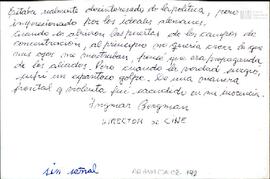 Estaba realmente desinteresado de la política, pero
impresionado por los ideales alemanes.
Cuando se abrieron las puertas de los campos de
concentración, al principio no quería creer lo que
mis ojos me mostraban, pensé que era propaganda
de los aliados. Pero cuando la verdad surgió,
sufrí un espantoso golpe. De una manera
frontal y violenta fui sacudido en mi inocencia.
Ingmar Bergman
DIRECTOR DE CINE
sin señal